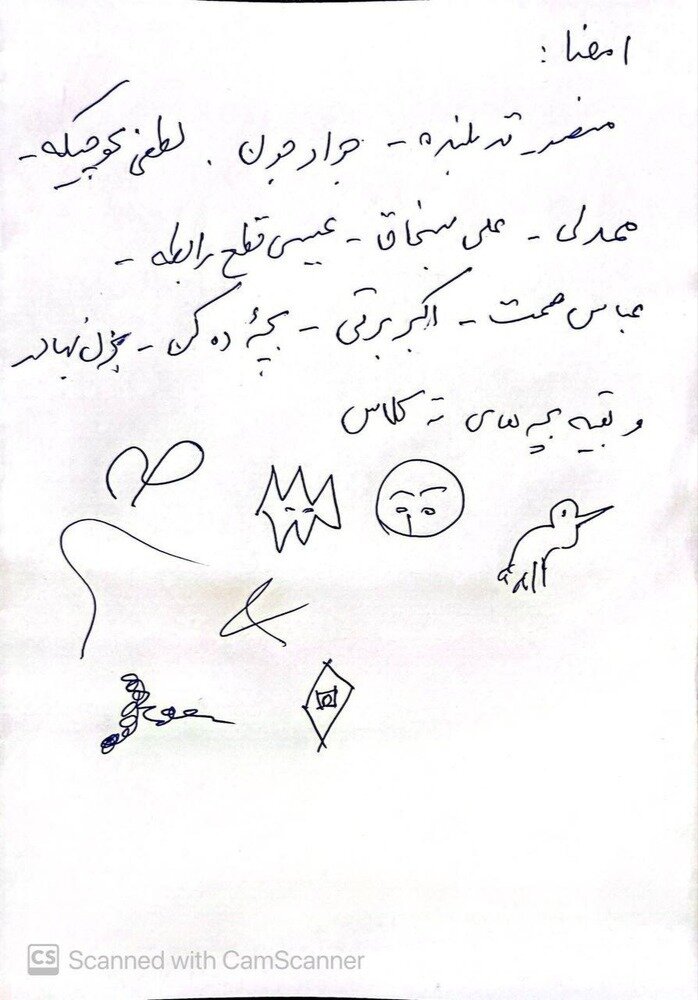 امضا :
منصور قد بلنده - جواد جون . لطفی کوچیکه -
ممدلی - علی سنجاق - عیسی قطع رابطه -
عباس همت - اکبر برقی - بچهٔ ده کن -
و بقیه بچه های ته کلاس
CS Scanned with CamScanner